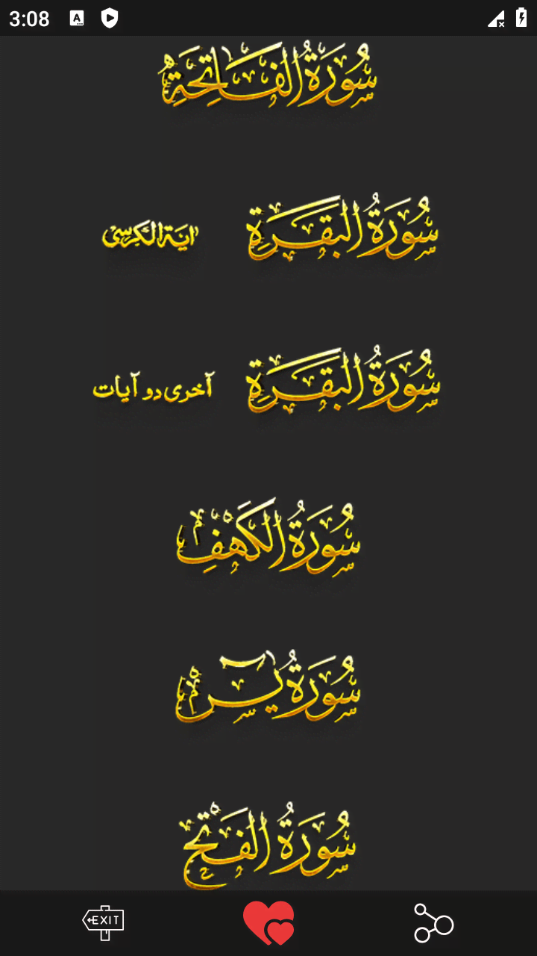 3:08
سُورَةُ الفَاتِحَةِ
سُورَةُ البَقَرَةِ اٰيَةُ الكُرسِی
سُورَةُ البَقَرَةِ آخری دو آیات
سُورَةُ الكَهْفِ
سُورَةُ يٰسٓ
سُورَةُ الفَتْحِ
EXIT